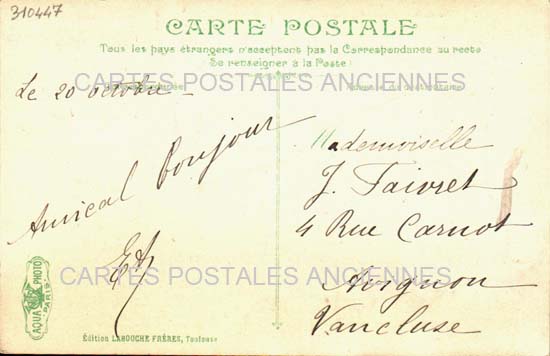 310447
CARTE POSTALE
Tous les pays étrangers n'acceptent pas la Correspondance au recto
Se renseigner à la Poste
CARTES POSTALES ANCIENNES
Le 20 octobre
Amical Bonjour
Mademoiselle
J. Faivret
4 Rue Carnot
Avignon
Vaucluse
CARTES POSTALES ANCIENNES
AQUA PHOTO
PARIS
Édition LABOUCHE FRÈRES, Toulouse